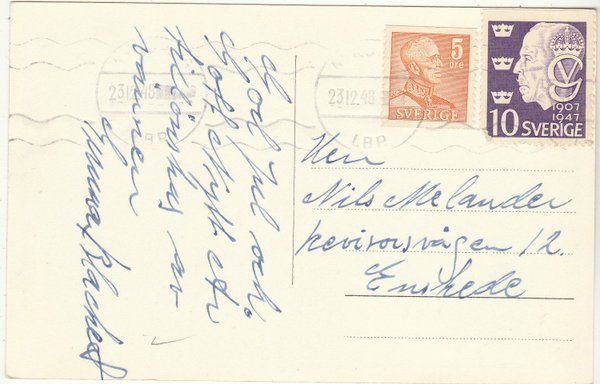 God Jul och
Gott Nytt År
tillönskas av
vännen
5
öre
SVERIGE
1907
1947
10 SVERIGE
23 12.48
23 12.48
LBP
LBP
Herr
Nils Melander
Revisorsvägen 12.
Enskede